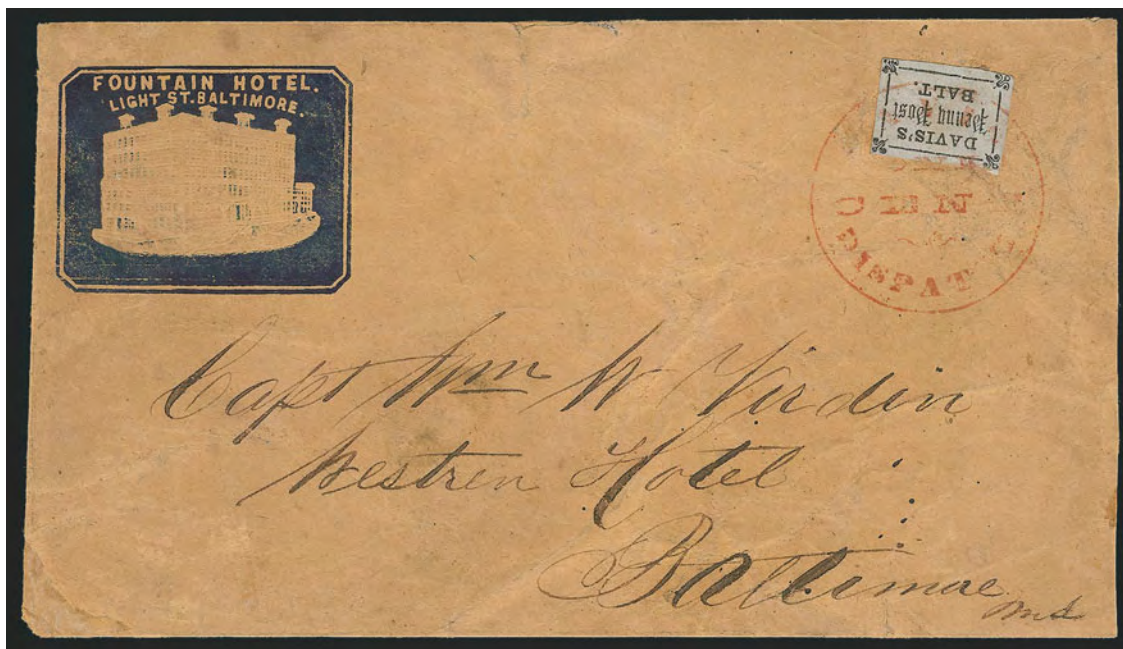 FOUNTAIN HOTEL.
LIGHT ST. BALTIMORE.
DAVIS'S
Penny Post
BALT.
DISPATCH
Capt Wm W Virdin
Westren Hotel
Baltimore
Md